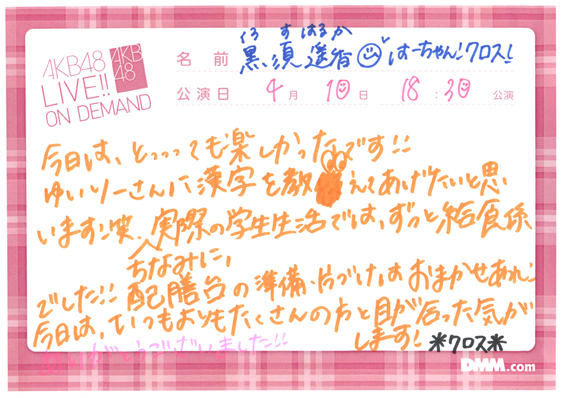 AKB48
LIVE!!
ON DEMAND
AKB
48
くろ すはるか
名前 黒須遥香 はーちゃん!クロス!
公演日 4月10日 18:30 公演
今日は、とっっっても楽しかったです!!
ゆいりーさんに漢字を教えてあげたいと思
います!笑、実際の学生生活では、ずっと給食係
ちなみに、
でした!! 配膳台の準備・片づけはおまかせあれ!
今日は、いつもよりもたくさんの方と目が合った気が
します! *クロス*
ありがとうございました!!
DMM.com